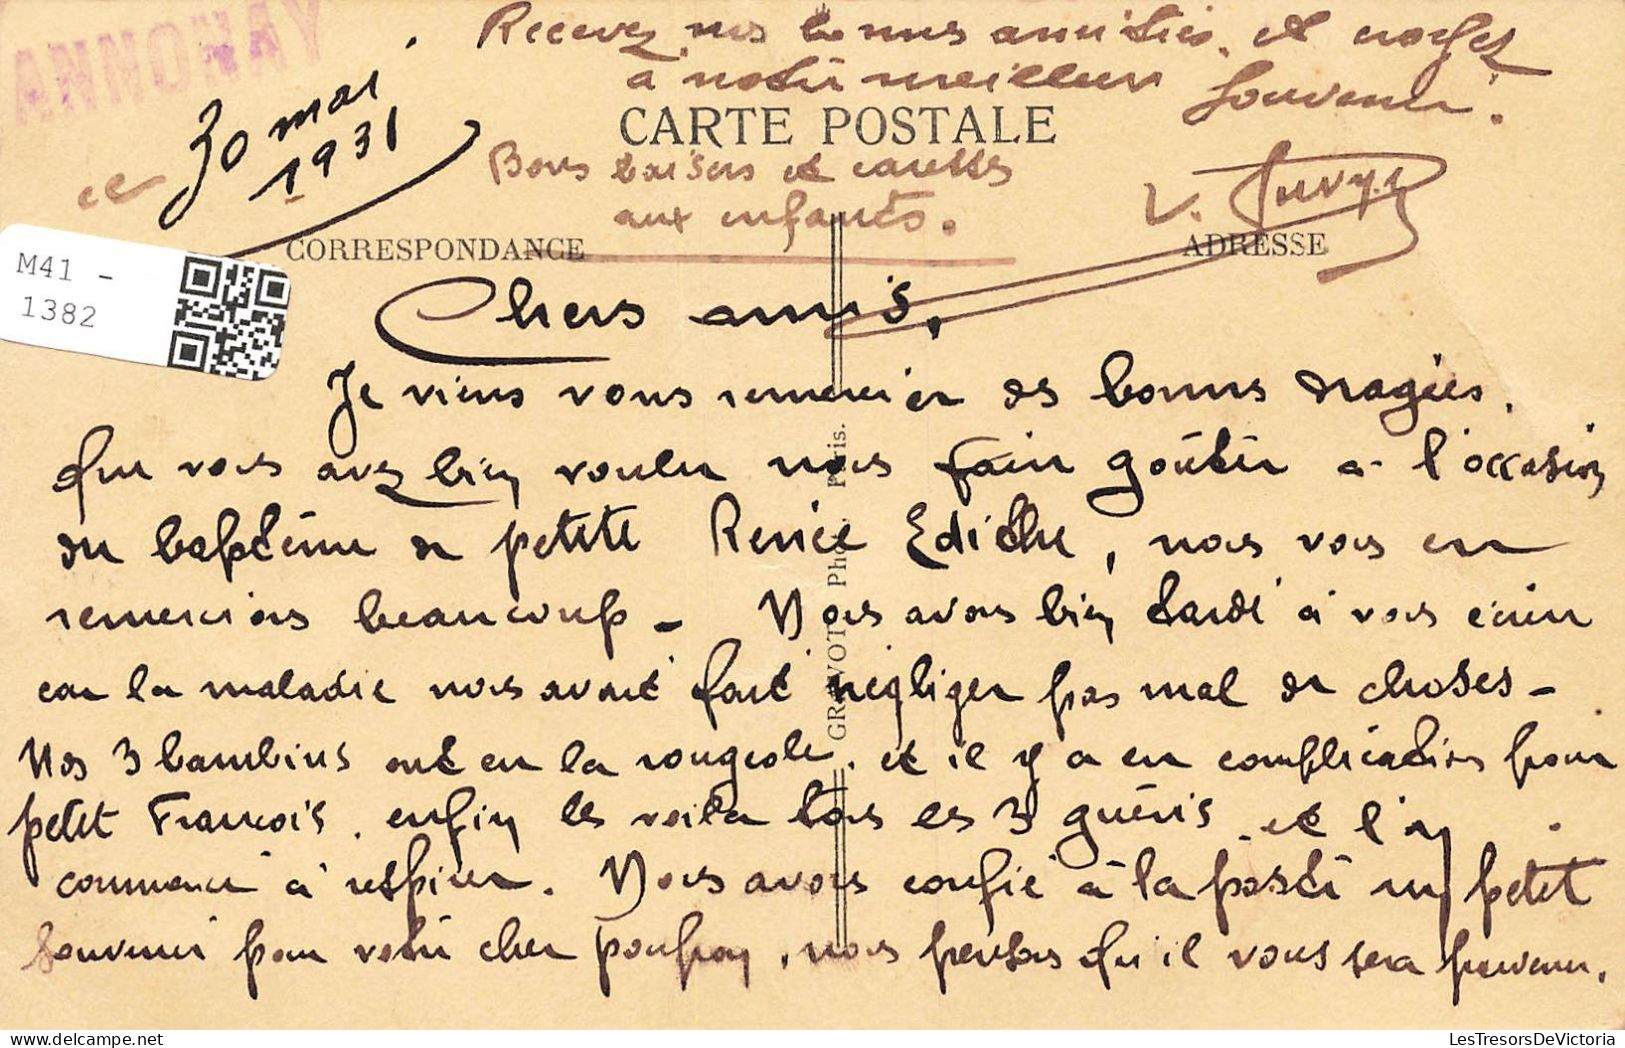 Recevez nos bonnes amitiés et croyez
à notre meilleur souvenir.
CARTE POSTALE
Bons baisers et caresses
aux enfants.
ce 30 mai
1931
CORRESPONDANCE
ADRESSE
M41 -
1382
Chers amis,
Je viens vous remercier des bonnes dragées,
que vous avez bien voulu nous faire goûter à l'occasion
du baptême de petite Renée Edithe, nous vous en
remercions beaucoup - Nous avons bien tardé à vous écrire
car la maladie nous avait fait négliger pas mal de choses -
Nos 3 bambins ont eu la rougeole, et il y a eu complications pour
petit François, enfin les voilà tous les 3 guéris et l'on
commence à respirer. Nous avons confié à la poste un petit
souvenir pour votre cher poupon, nous pensons qu'il vous sera parvenu.
GRAVOT, Phot. Paris.
LesTresorsDeVictoria